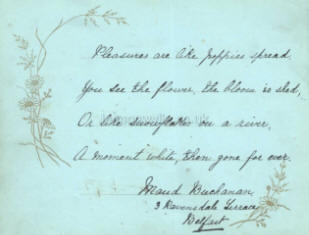 Pleasures are like poppies spread
You see the flower, the bloom is shed,
Or like snowflakes on a river,
A moment white, then gone for ever.
Maud Buchanan
3 Ravensdale Terrace
Belfast